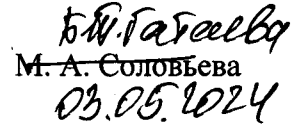 Б.Т. Гатаева
М. А. Соловьева
03.05.2024